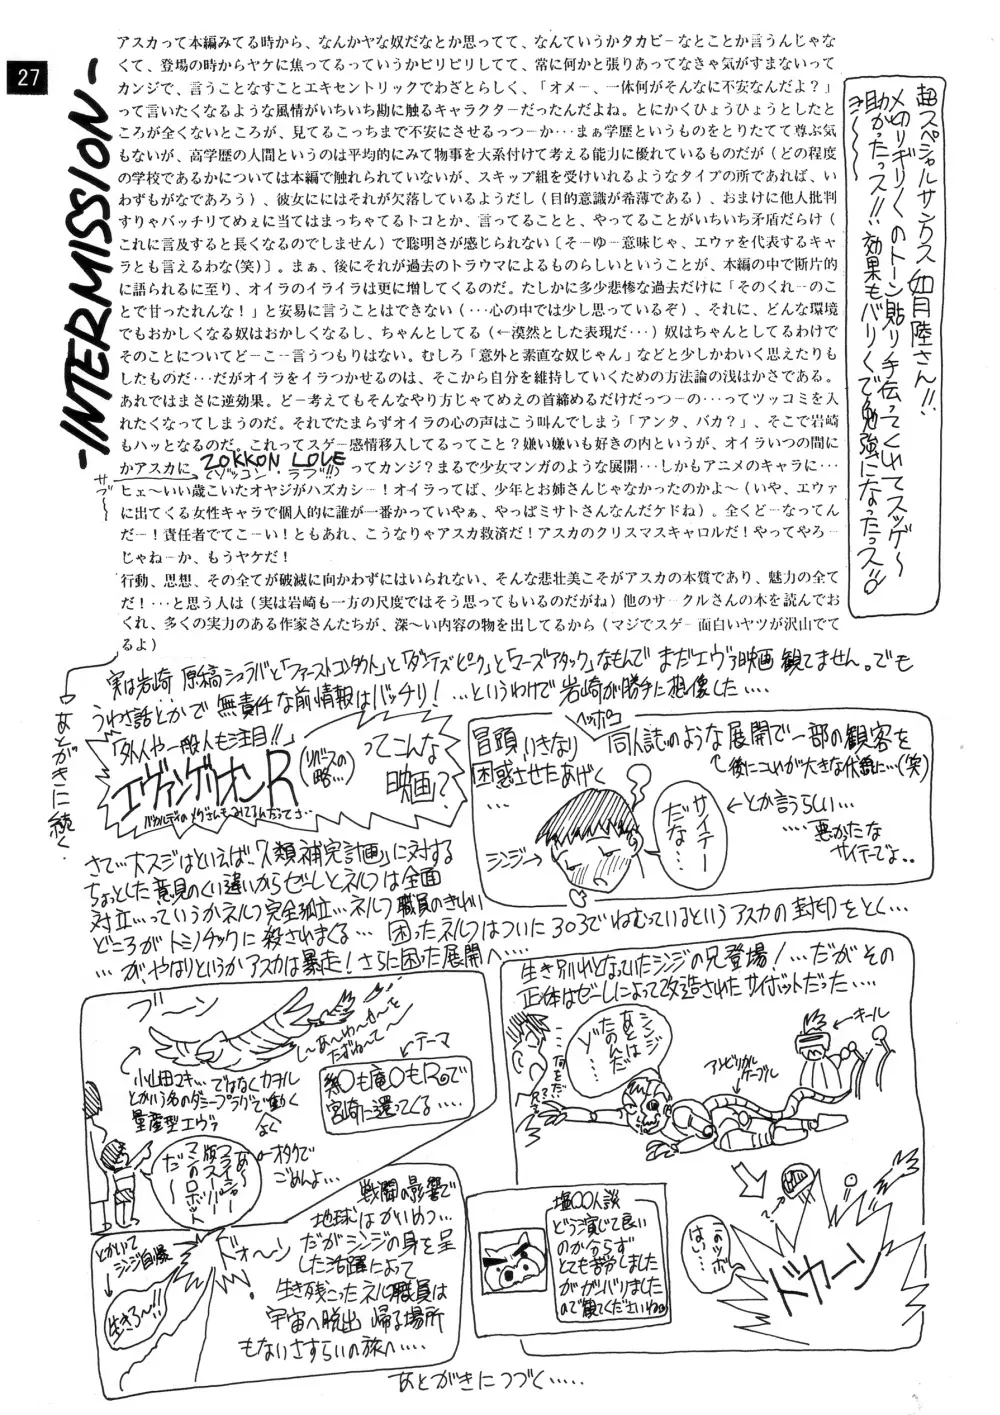 27
-INTERMISSION-
アスカって本編みてる時から、なんかヤな奴だなとか思ってて、なんていうかタカビーなとことか言うんじゃな
くて、登場の時からヤケに焦ってるっていうかピリピリしてて、常に何かと張りあってなきゃ気がすまないって
カンジで、言うことなすことエキセントリックでわざとらしく、「オメー、一体何がそんなに不安なんだよ？」
って言いたくなるような風情がいちいち勘に触るキャラクターだったんだよね。とにかくひょうひょうとしたと
ころが全くないところが、見てるこっちまで不安にさせるっつーか…まぁ学歴というものをとりたてて尊ぶ気
もないが、高学歴の人間というのは平均的にみて物事を大系付けて考える能力に優れているものだが（どの程度
の学校であるかについては本編で触れられていないが、スキップ組を受けいれるようなタイプの所であれば、い
わずもがなであろう）、彼女ににはそれが欠落しているようだし（目的意識が希薄である）、おまけに他人批判
すりゃバッチリてめぇに当てはまっちゃてるトコとか、言ってることと、やってることがいちいち矛盾だらけ（
これに言及すると長くなるのでしません）で聡明さが感じられない〔そーゆー意味じゃ、エヴァを代表するキャ
ラとも言えるわな(笑)〕。まぁ、後にそれが過去のトラウマによるものらしいということが、本編の中で断片的
に語られるに至り、オイラのイライラは更に増してくるのだ。たしかに多少悲惨な過去だけに「そのくれーのこ
とで甘ったれんな！」と安易に言うことはできない（…心の中では少し思っているぞ）、それに、どんな環境
でもおかしくなる奴はおかしくなるし、ちゃんとしてる（←漠然とした表現だ…）奴はちゃんとしてるわけで
そのことについてどーこー言うつもりはない。むしろ「意外と素直な奴じゃん」などと少しかわいく思えたりも
したものだ…だがオイラをイラつかせるのは、そこから自分を維持していくための方法論の浅はかさである。
あれではまさに逆効果。どー考えてもそんなやり方じゃてめえの首締めるだけだっつーの…ってツッコミを入
れたくなってしまうのだ。それでたまらずオイラの心の声はこう叫んでしまう「アンタ、バカ？」、そこで岩崎
もハッとなるのだ。これってスゲー感情移入してるってこと？嫌い嫌いも好きの内というが、オイラいつの間に
かアスカに ZOKKON LOVE ってカンジ？まるで少女マンガのような展開…しかもアニメのキャラに…
(ゾッコン・ラブ!!)
サブ〜
ヒェ〜いい歳こいたオヤジがハズカシー！オイラってば、少年とお姉さんじゃなかったのかよ〜（いや、エヴァ
に出てくる女性キャラで個人的に誰が一番かっていやぁ、やっぱミサトさんなんだケドね）。全くどーなってん
だー！責任者でてこーい！ともあれ、こうなりゃアスカ救済だ！アスカのクリスマスキャロルだ！やってやろー
じゃねーか、もうヤケだ！
行動、思想、その全てが破滅に向かわずにはいられない、そんな悲壮美こそがアスカの本質であり、魅力の全て
だ！…と思う人は（実は岩崎も一方の尺度ではそう思ってもいるのだがね）他のサークルさんの本を読んでお
くれ、多くの実力のある作家さんたちが、深〜い内容の物を出してるから（マジでスゲー面白いヤツが沢山でて
るよ）
超スペシャルサンクス 如月陸さん!!
〆切りギリギリのトーン貼り手伝ってくれてスッゲ〜
助かったっス!!効果もバリバリで勉強になったっス
あとがきに続く
実は岩崎 原稿シュラバと「ファーストコンタクト」と「ダンテズピーク」と「マーズアタック」なもんで まだエヴァ映画 観てません。でも
うわさ話とかで 無責任な前情報はバッチリ！…というわけで岩崎が勝手に想像した…
「外人や一般人も注目!!」
エヴァンゲリオンR
(リバースの略…)
ってこんな映画？
ヘッポコ
冒頭いきなり同人誌のような展開で一部の観客を
困惑させたあげく…
後にコレが大きな伏線に…(笑)
シンジ→
サイテーだな…
←とか言うらしい…
…悪かったな
サイテーでよ..
さて…大スジはといえば、「人類補完計画」に対する
ちょっとした意見のくい違いからゼーレとネルフは全面
対立…っていうかネルフ完全孤立…ネルフ職員のきわい
どころがトミノチックに殺されまくる… 困ったネルフはついに303でねむっているというアスカの封印をとく…
…が、やはりというかアスカは暴走！さらに困った展開へ…
ブーン
〜あ〜ゆ〜き〜と
たずね〜て〜
←テーマ
無○も庵○もRで
宮崎に還ってくる…
小山田マキ…ではなくカヲル
とかいう名のダミープラグで動く
量産型エヴァ
なぐ
あ〜
フライシャー
版スーパー
マンのロボット
だ〜
←オタクで
ごめんよ…
生き別れとなっていたシンジの兄登場！…だがその
正体はゼーレによって改造されたサイボットだった…
シンジ
あとは
たのんだ
ゾ…
何をだ?
アンビリカル
ケーブル
←キール
このツボは
はい…
ドカーン
塩○○人談
どう演じて良い
のか分らず
とても苦労しました
がガンバリました
ので観てくださいね
とかいって
シンジ自爆
生きろ〜!!
ドォ〜ン
戦闘の影響で
地球はかいめつ…
だがシンジの身を呈
した活躍によって
生き残ったネルフ職員は
宇宙へ脱出 帰る場所
もないさすらいの旅へ…
あとがきにつづく…..